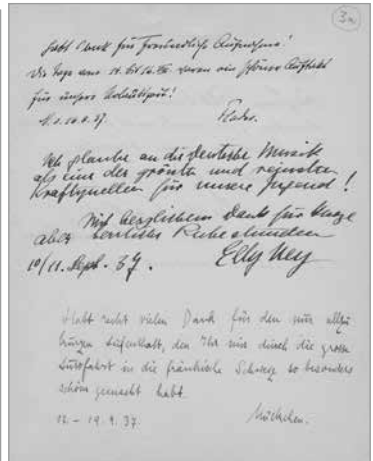 3a
Habt Dank für freundliche Aufnahme!
Die Tage vom 14. bis 16. VIII. waren ein schöner Auftakt
für unsere Urlaubszeit!
16.8.37.
Ich glaube an die deutsche Musik
als eine der größten und reinsten
Kraftquellen für unsere Jugend!
Mit herzlichem Dank für kurze
aber herrliche Ruhestunden
10/11. Sept. 37. Elly Ney
Habt recht vielen Dank für den nur allzu
kurzen Aufenthalt, den Ihr mir durch die grosse
Autofahrt in die fränkische Schweiz so besonders
schön gemacht habt.
12. – 19.9.37.